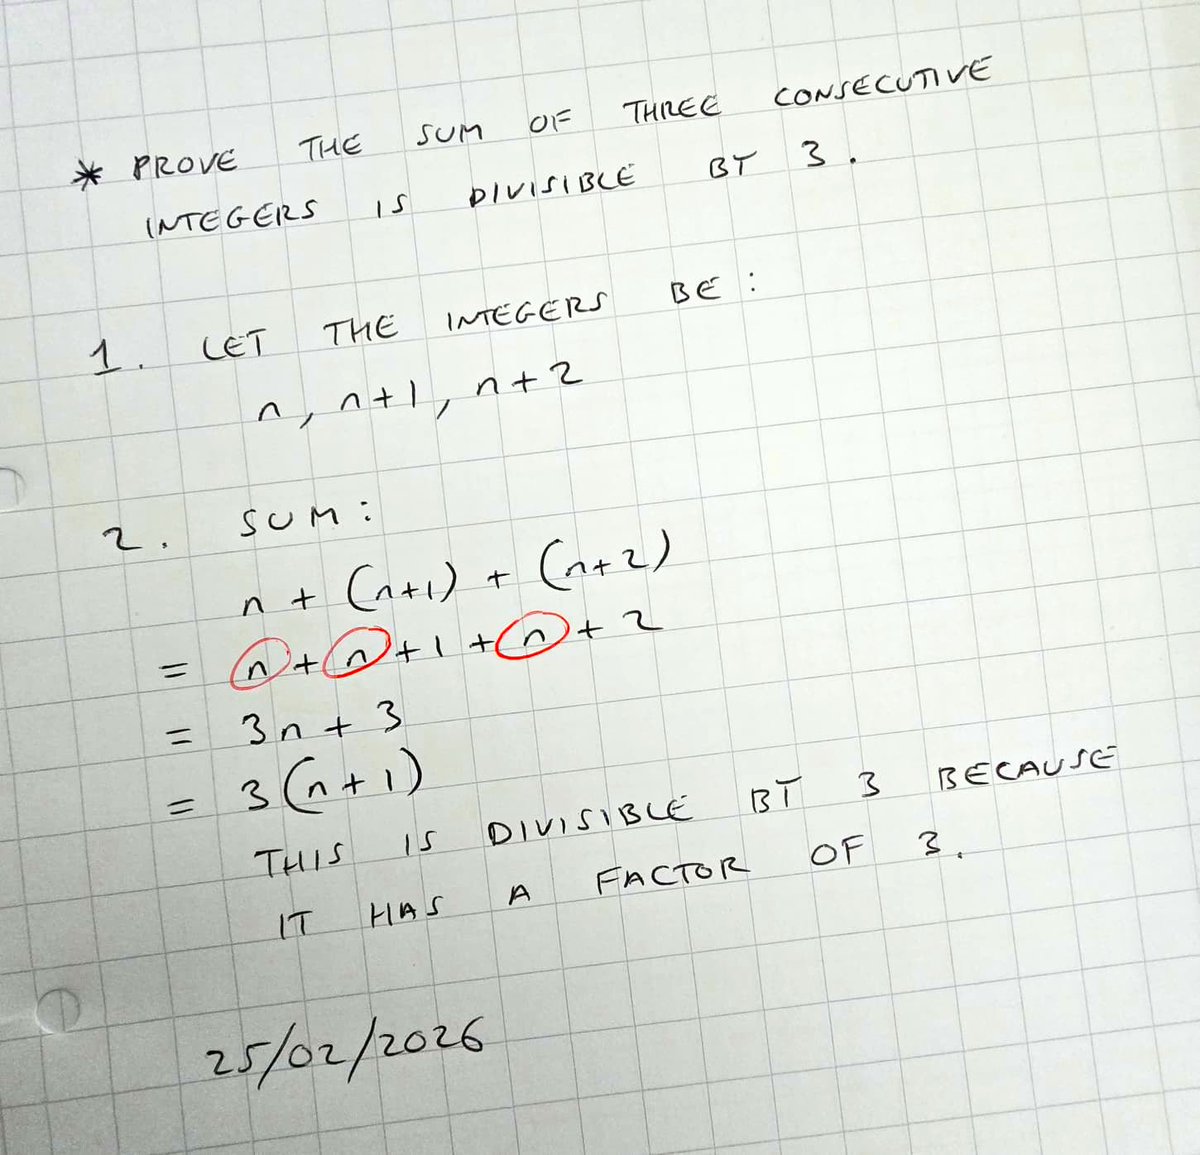 * PROVE THE SUM OF THREE CONSECUTIVE
INTEGERS IS DIVISIBLE BY 3.
1. LET THE INTEGERS BE:
n, n+1, n+2
2. SUM:
n + (n+1) + (n+2)
= n + n + 1 + n + 2
= 3n + 3
= 3(n+1)
THIS IS DIVISIBLE BY 3 BECAUSE
IT HAS A FACTOR OF 3.
25/02/2026